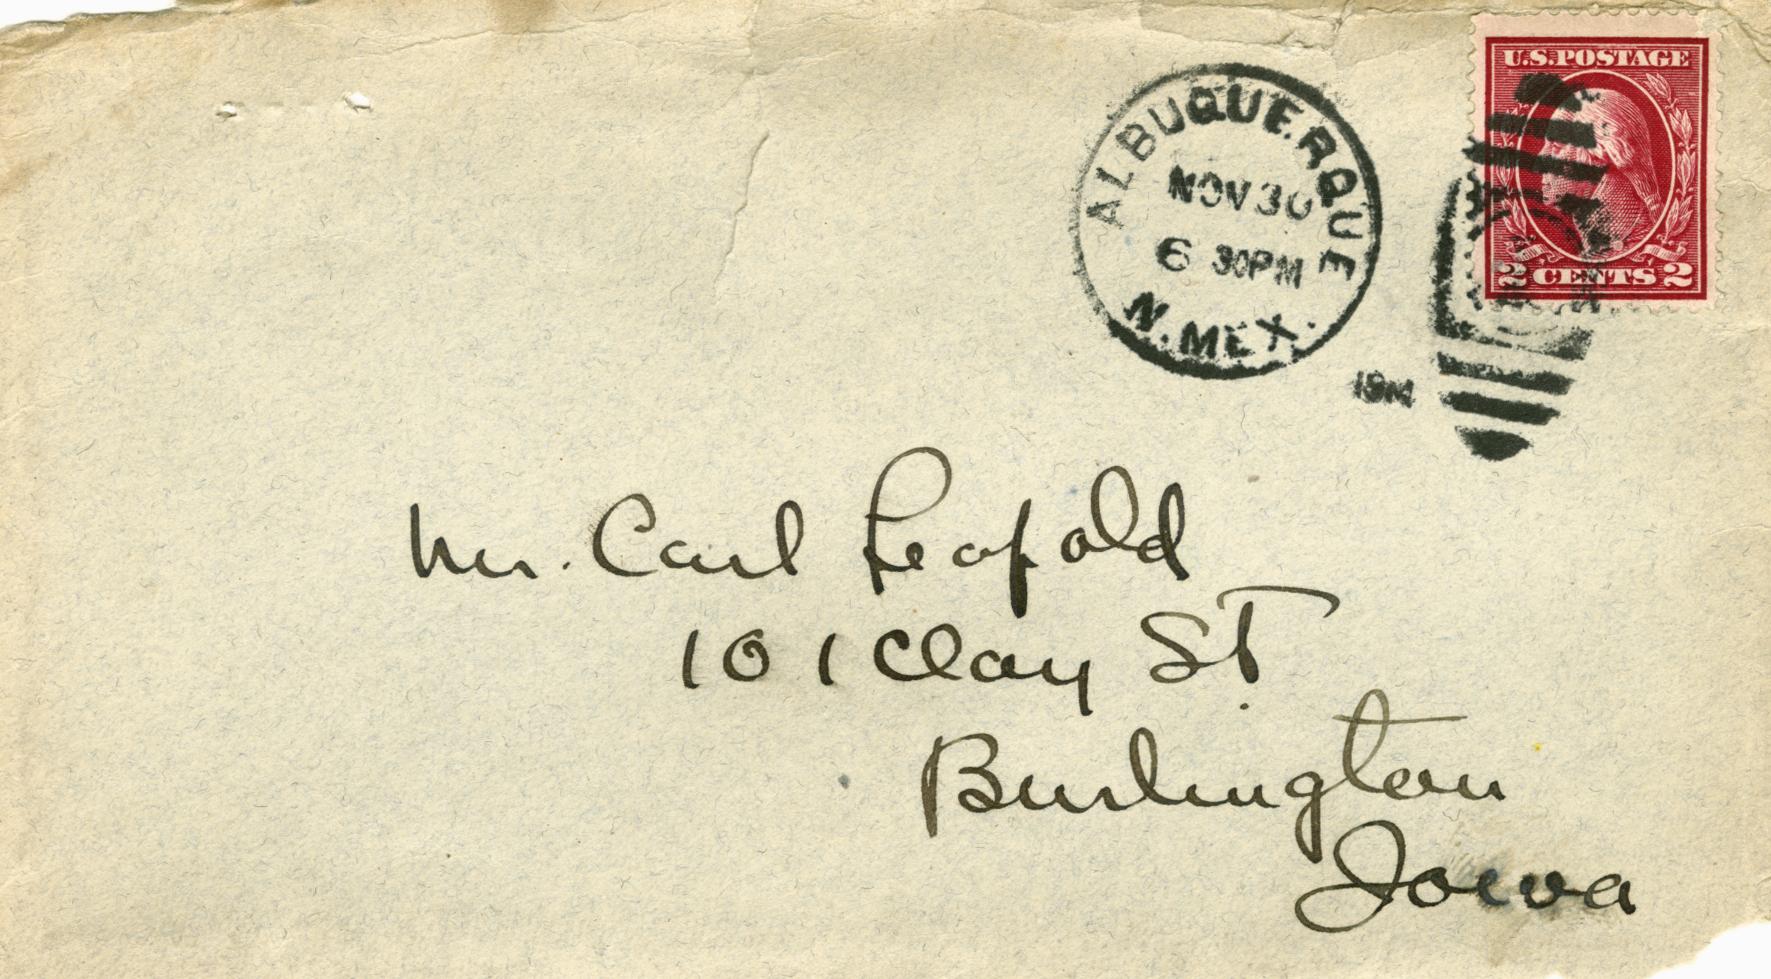 U.S. POSTAGE
2 CENTS 2
ALBUQUERQUE
NOV 30
6 30PM
N. MEX.
Mr. Carl Leopold
101 Clay St.
Burlington
Iowa